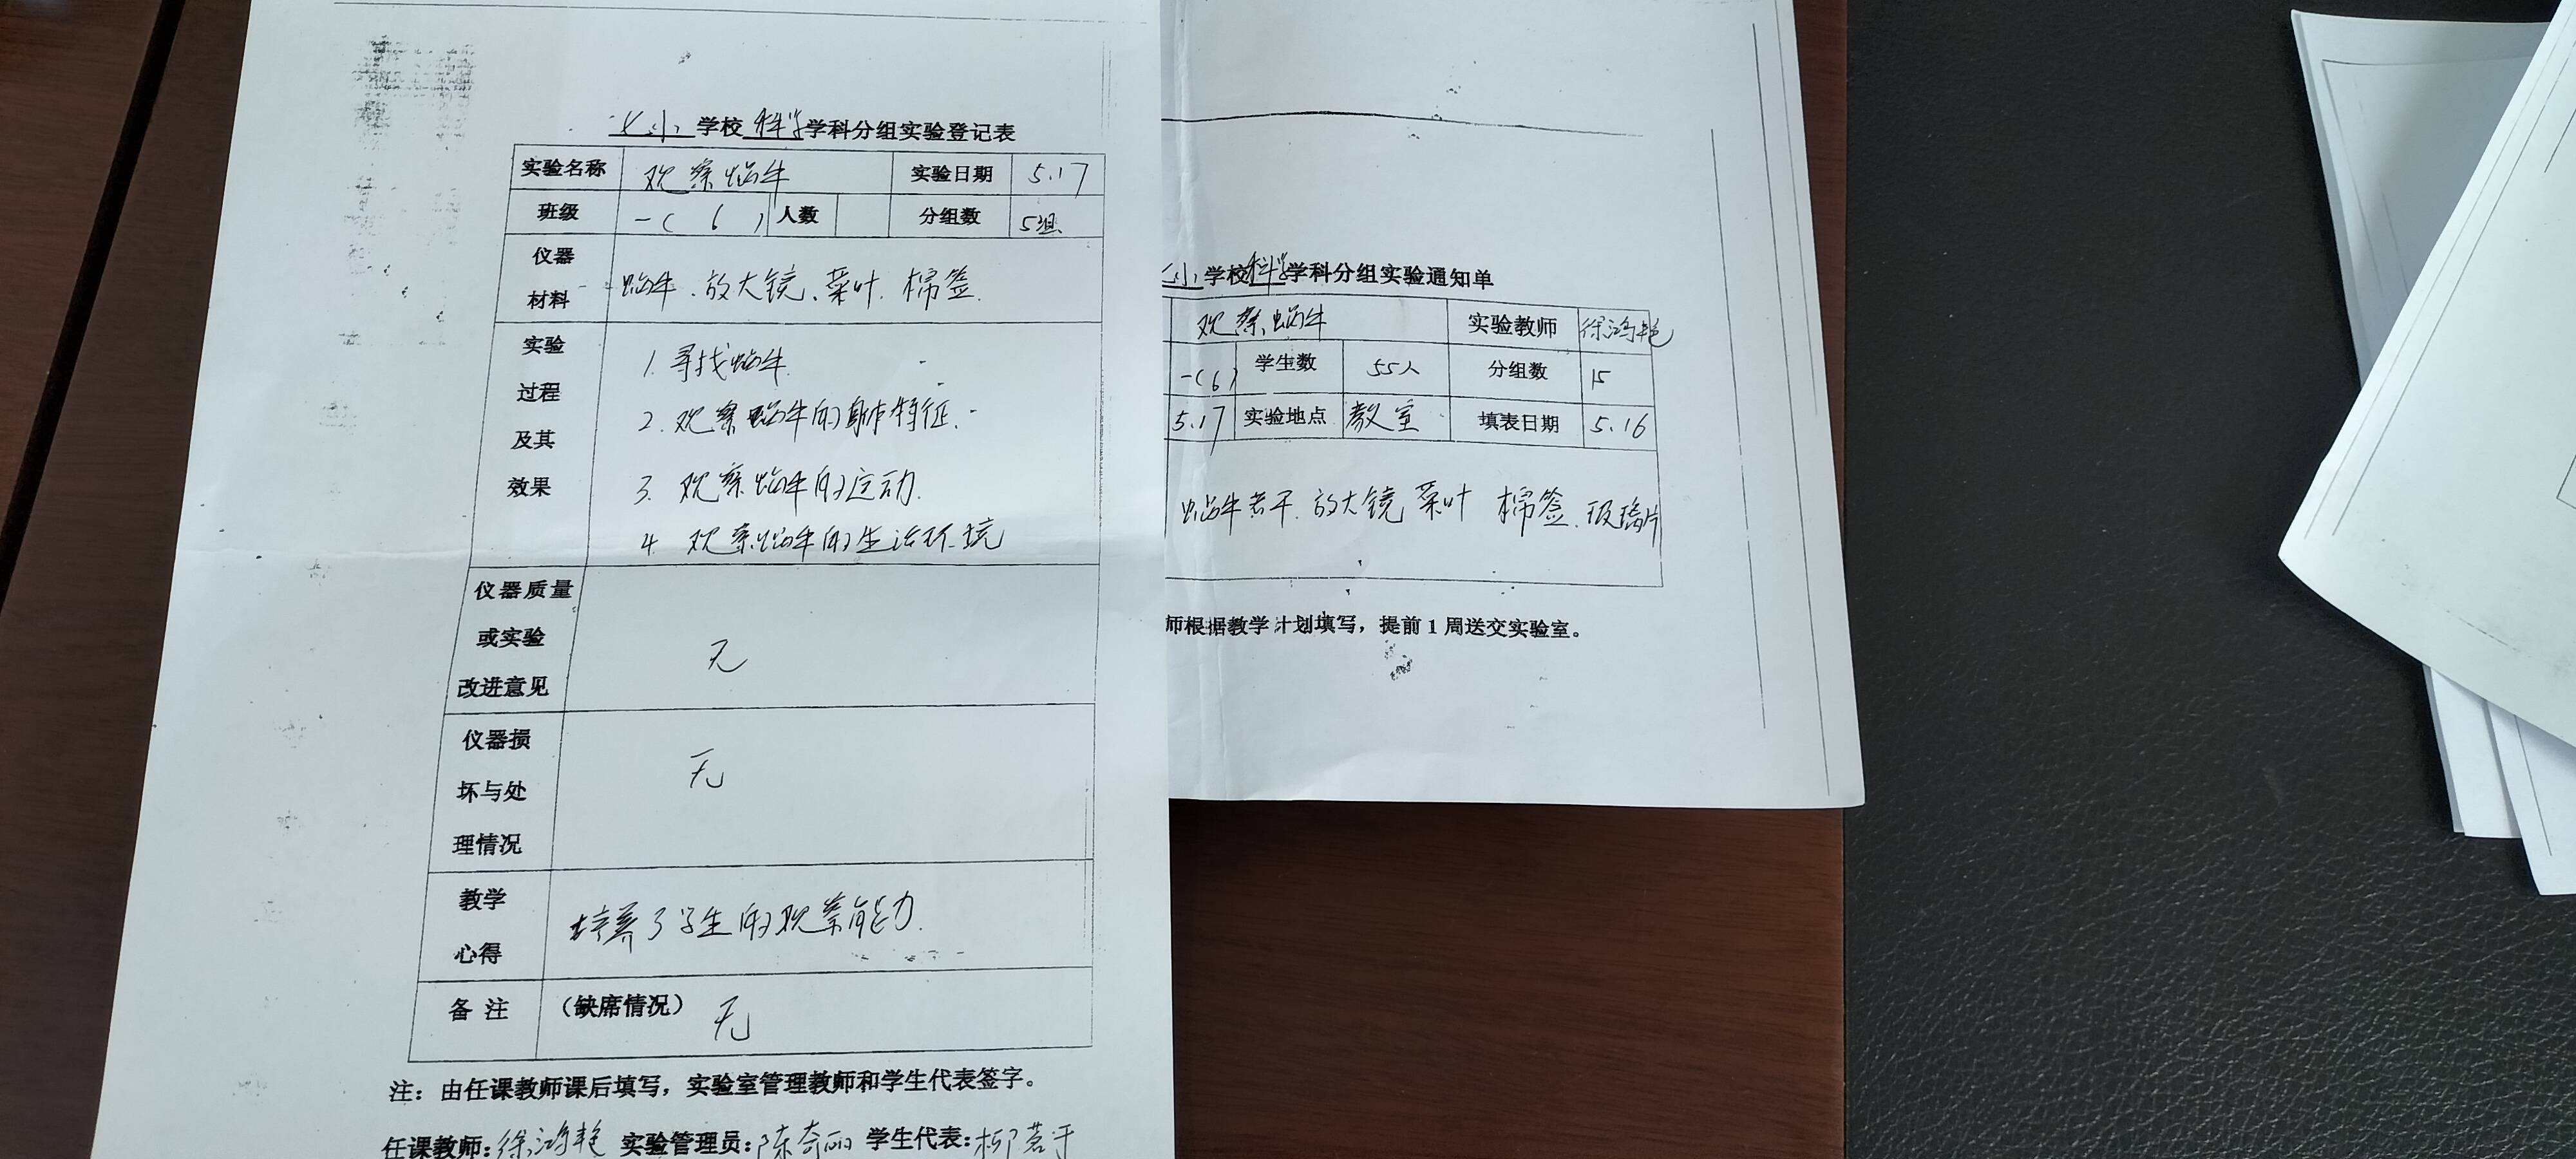 小学校科学学科分组实验登记表
实验名称 观察蜗牛 实验日期 5.17
班级 一(6) 人数 分组数 5组
仪器
材料
蜗牛、放大镜、菜叶、棉签
实验
过程
及其
效果
1. 寻找蜗牛.
2. 观察蜗牛的身体特征.
3. 观察蜗牛的运动.
4. 观察蜗牛的生活环境
仪器质量
或实验
改进意见
无
仪器损
坏与处
理情况
无
教学
心得
培养了学生的观察能力.
备注 (缺席情况) 无
注：由任课教师课后填写，实验室管理教师和学生代表签字。
任课教师:徐鸿艳 实验管理员:陈奇丽 学生代表:柳茗于
小学校科学学科分组实验通知单
观察蜗牛 实验教师 徐鸿艳
一(6) 学生数 55人 分组数 15
5.17 实验地点 教室 填表日期 5.16
蜗牛若干. 放大镜 菜叶 棉签. 玻璃片
师根据教学计划填写，提前1周送交实验室。